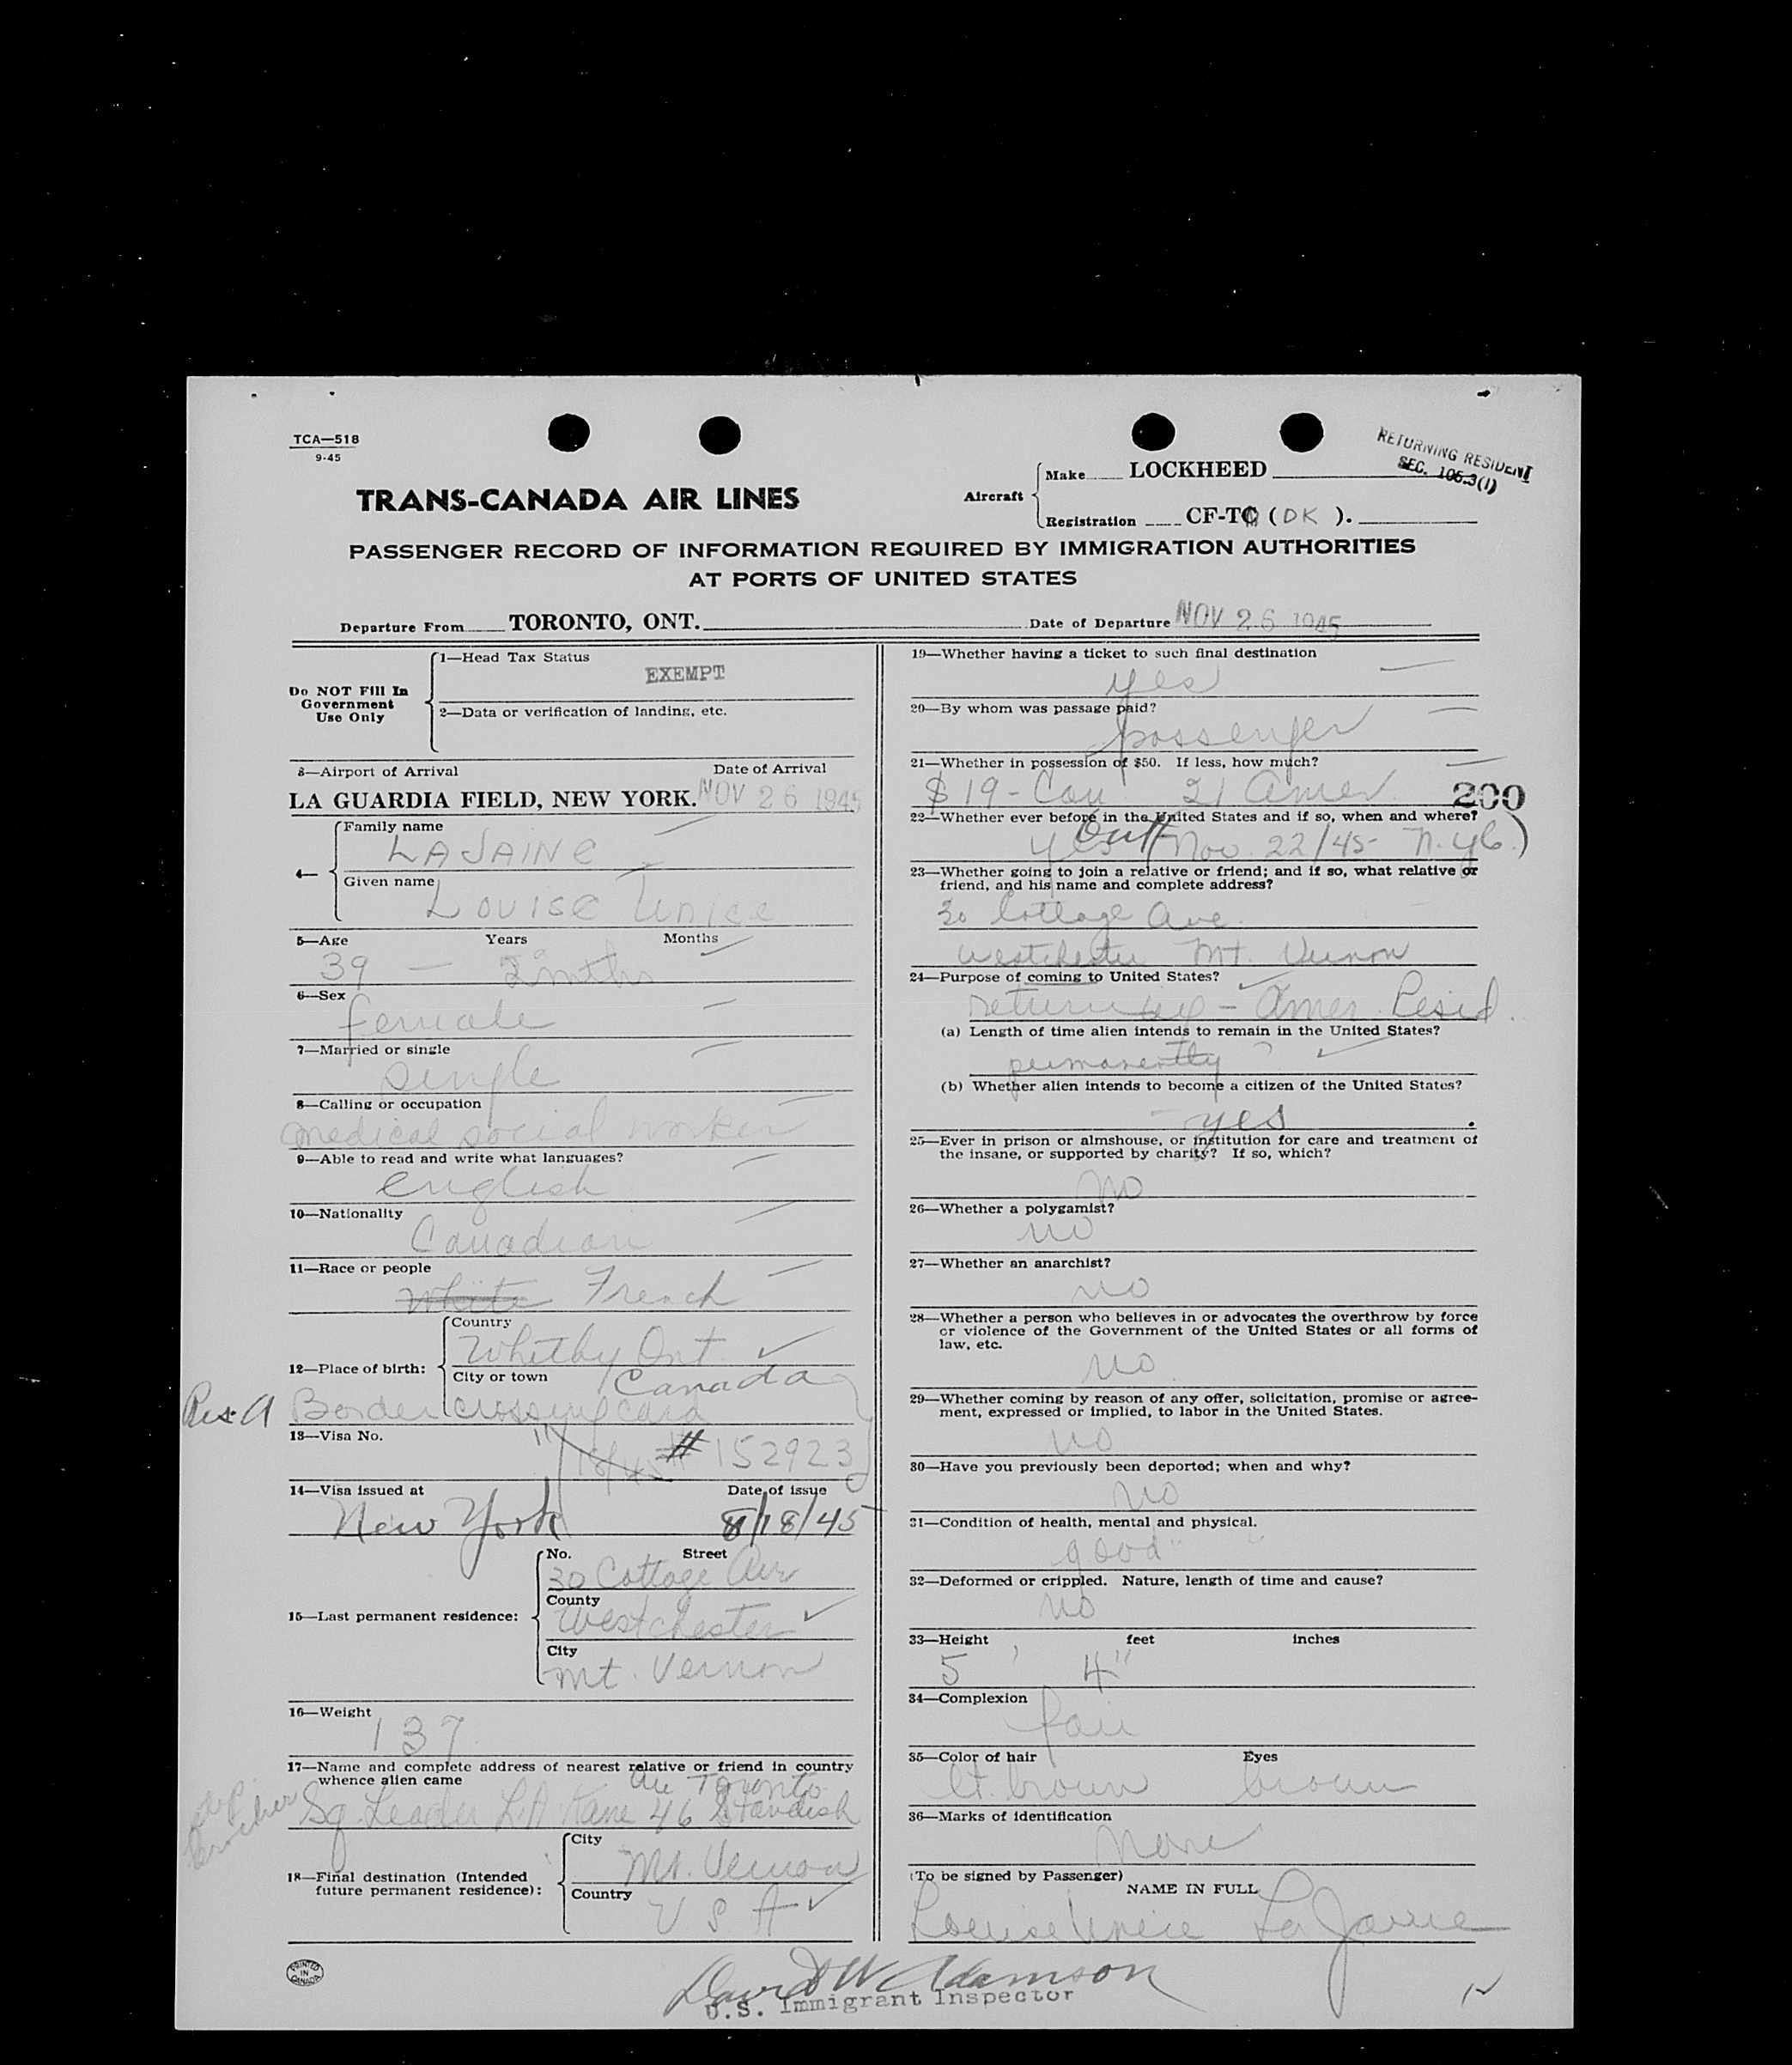 TCA—518
9-45
RETURNING RESIDENT
SEC. 105.3(1)
Aircraft
Make LOCKHEED
Registration CF-TC (DK).
TRANS-CANADA AIR LINES
PASSENGER RECORD OF INFORMATION REQUIRED BY IMMIGRATION AUTHORITIES
AT PORTS OF UNITED STATES
Departure From TORONTO, ONT. Date of Departure NOV 26 1945
Do NOT Fill In
Government
Use Only
1—Head Tax Status
EXEMPT
2—Data or verification of landing, etc.
3—Airport of Arrival Date of Arrival
LA GUARDIA FIELD, NEW YORK. NOV 26 1945
4—
Family name
LAJAINE
Given name
LOUISE Unice
5—Age Years Months
39 — 2 mths
6—Sex
female
7—Married or single
single
8—Calling or occupation
medical social worker
9—Able to read and write what languages?
english
10—Nationality
Canadian
11—Race or people
White French
12—Place of birth:
Country
Whitby Ont.
City or town
Canada
Res. A Border crossing card
13—Visa No.
# 152923
14—Visa issued at Date of issue
New York 8/18/45
15—Last permanent residence:
No. Street
30 Cottage Ave
County
Westchester
City
Mt. Vernon
16—Weight
137
17—Name and complete address of nearest relative or friend in country
whence alien came
Ave Toronto
Sq. Leader L.A. Kane 46 Standish
brother
18—Final destination (Intended
future permanent residence):
City
Mt. Vernon
Country
U S A
PRINTED
IN
CANADA
19—Whether having a ticket to such final destination
yes
20—By whom was passage paid?
passenger
21—Whether in possession of $50. If less, how much?
$19 - Can 21 Amer.
200
22—Whether ever before in the United States and if so, when and where?
yes Out (Nov. 22/45 - N.Y.C.)
23—Whether going to join a relative or friend; and if so, what relative or
friend, and his name and complete address?
30 Cottage Ave.
Westchester Mt. Vernon
24—Purpose of coming to United States?
returning - Amer Resid.
(a) Length of time alien intends to remain in the United States?
permanently
(b) Whether alien intends to become a citizen of the United States?
yes
25—Ever in prison or almshouse, or institution for care and treatment of
the insane, or supported by charity? If so, which?
no
26—Whether a polygamist?
no
27—Whether an anarchist?
no
28—Whether a person who believes in or advocates the overthrow by force
or violence of the Government of the United States or all forms of
law, etc.
no
29—Whether coming by reason of any offer, solicitation, promise or agree-
ment, expressed or implied, to labor in the United States.
no
30—Have you previously been deported; when and why?
no
31—Condition of health, mental and physical.
good
32—Deformed or crippled. Nature, length of time and cause?
no
33—Height feet inches
5' 4"
34—Complexion
fair
35—Color of hair Eyes
lt. brown brown
36—Marks of identification
none
(To be signed by Passenger)
NAME IN FULL
Louise Unice LaJaine
David W Adamson
U.S. Immigrant Inspector